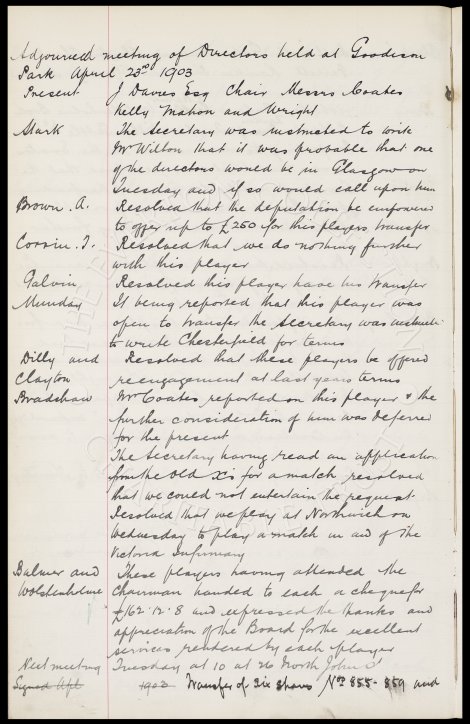 Adjourned meeting of Directors held at Goodison
Park April 23rd 1903
Present J Davies Esq Chair Messrs Coates
Kelly Mahon and Wright
Stark The Secretary was instructed to write
Mr Wilton that it was probable that one
of the directors would be in Glasgow on
Tuesday and if so would call upon him
Brown. A. Resolved that the deputation be empowered
to offer up to £250 for this players transfer
Corrin. T. Resolved that we do nothing further
with this player
Galvin Resolved this player have his transfer
Munday It being reported that this player was
open to transfer the Secretary was instructed
to write Chesterfield for terms
Dilly and Resolved that these players be offered
Clayton reengagement at last years terms
Bradshaw Mr Coates reported on this player & the
further consideration of him was deferred
for the present
The Secretary having read an application
from the Old Xs for a match resolved
that we could not entertain the request.
Resolved that we play at Northwich on
Wednesday to play a match in aid of the
Victoria Infirmary
Balmer and These players having attended the
Wolstenholme Chairman handed to each a cheque for
£162.12.8 and expressed the thanks and
appreciation of the Board for the excellent
services rendered by each player
Next meeting Tuesday at 10 at 26 North John St
Signed Apl 1903 Transfer of Six shares Nos 855-859 and